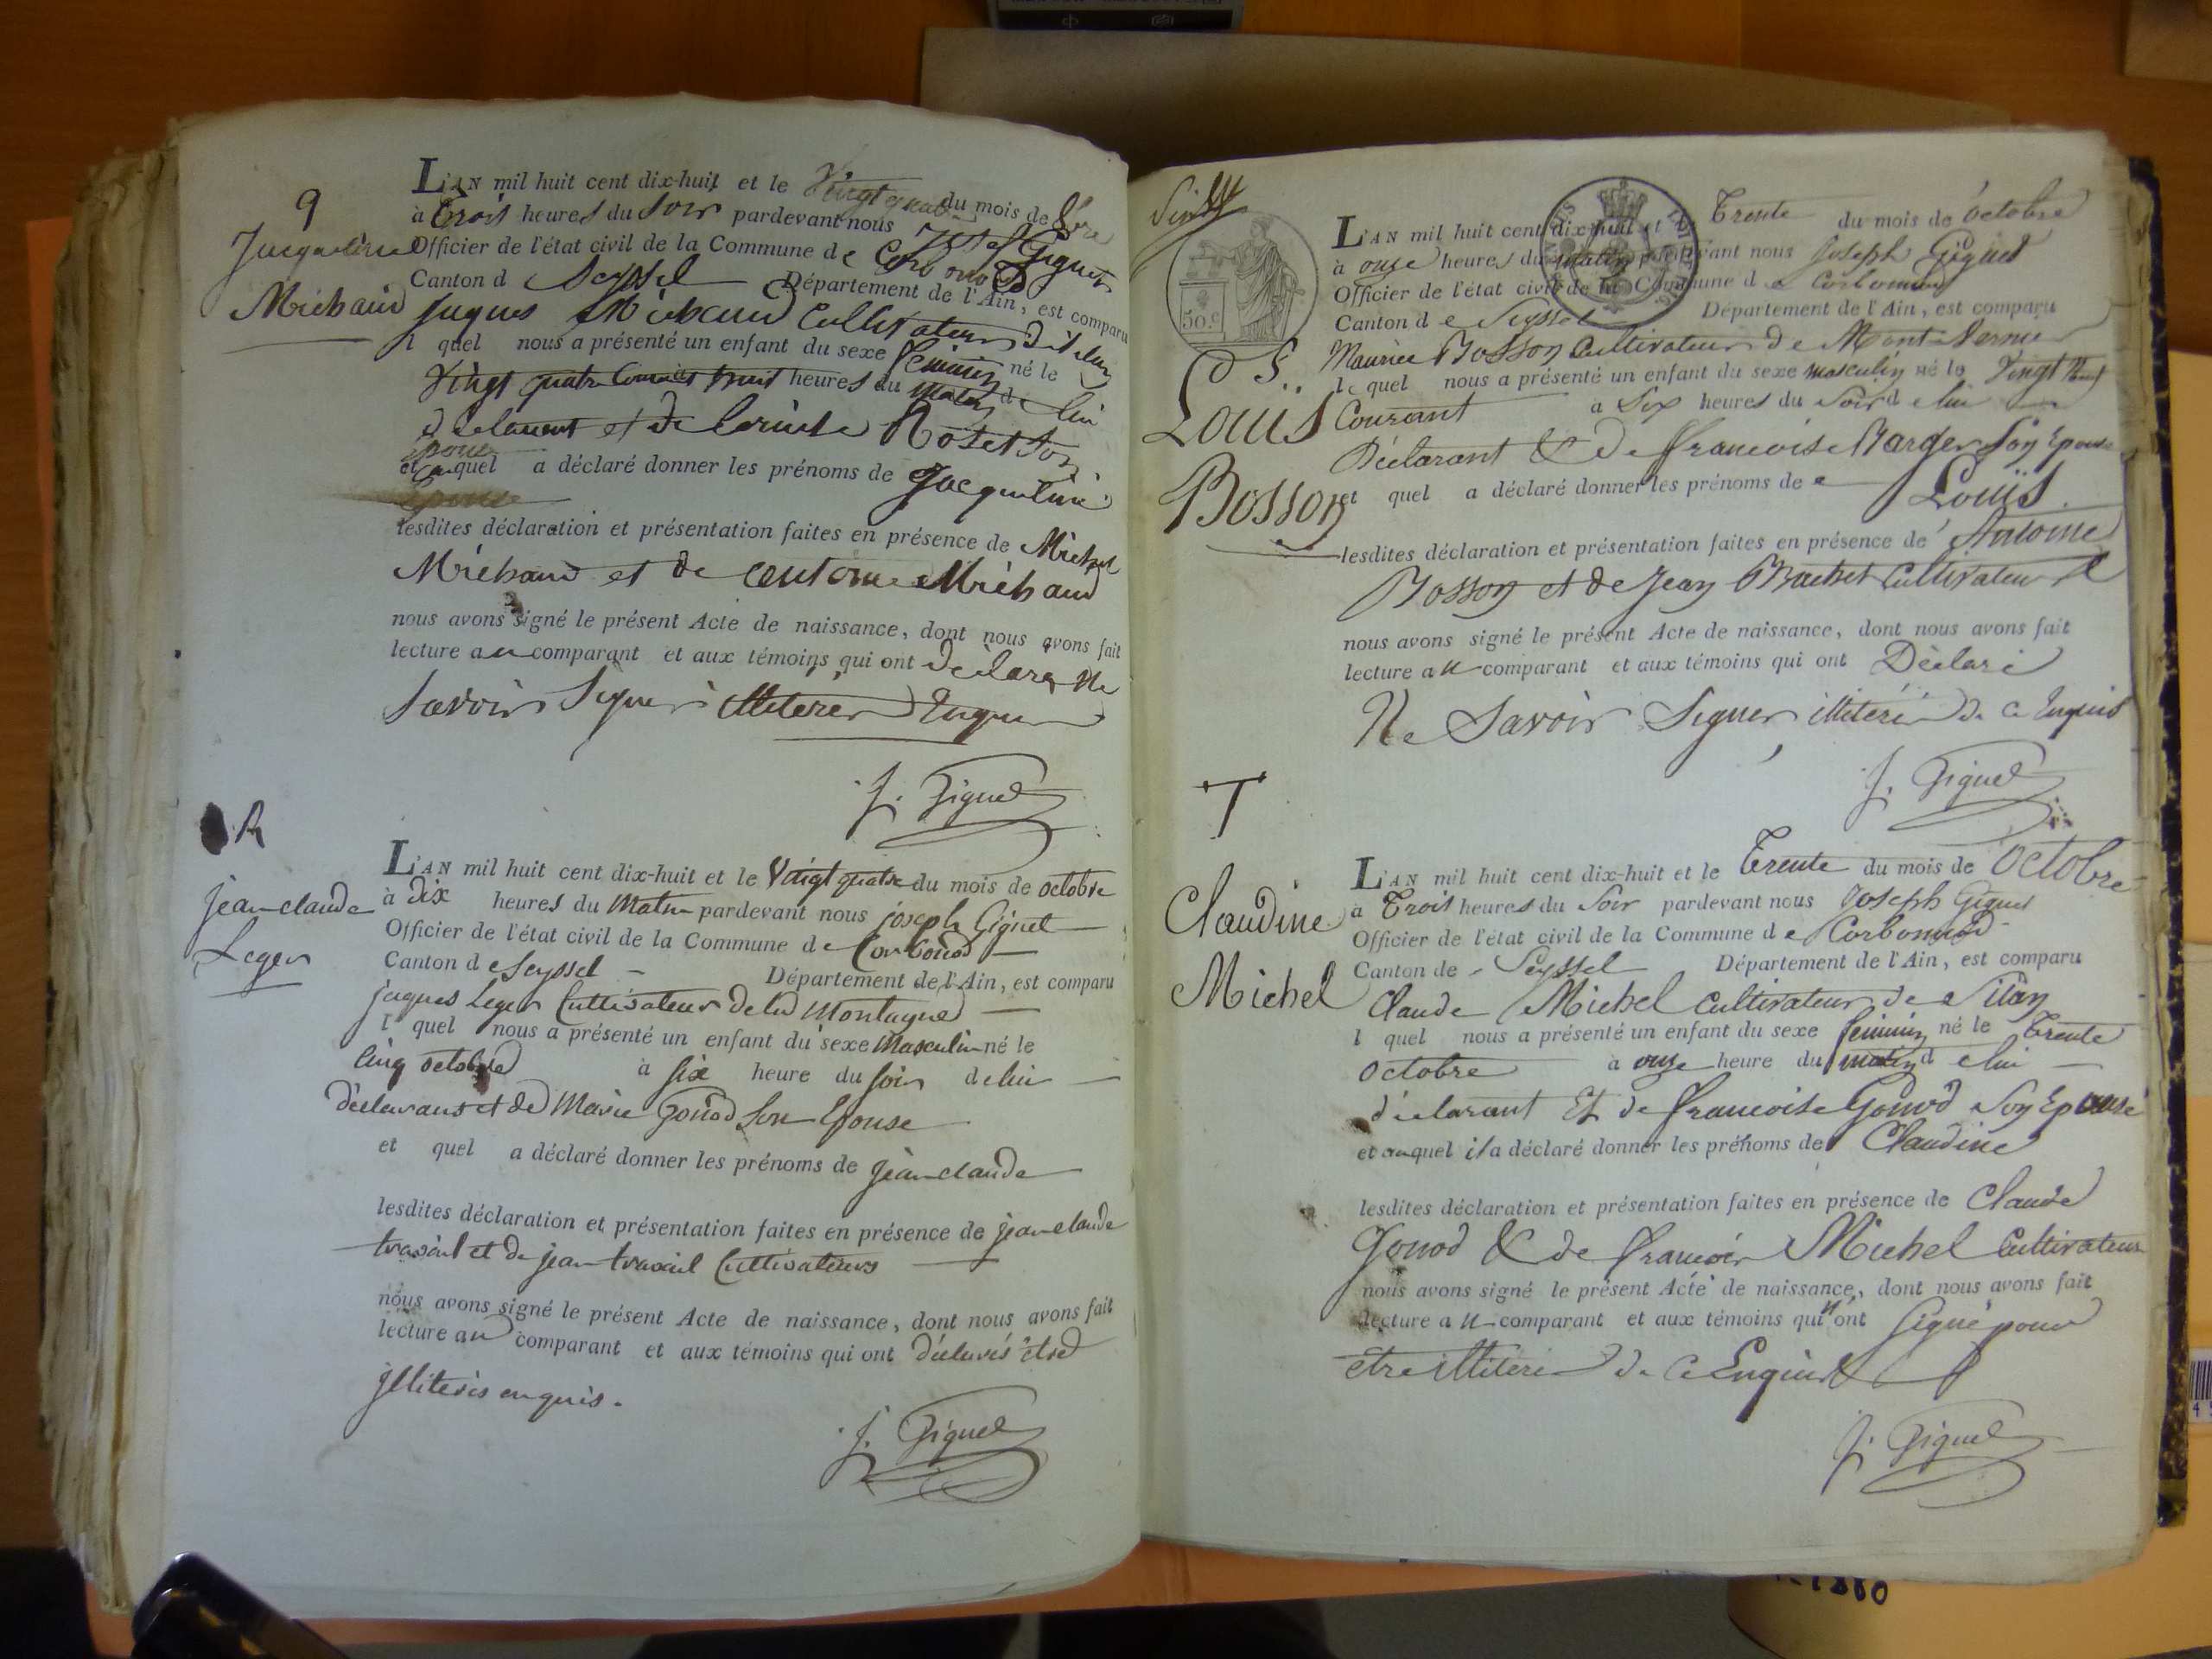 9
Jacqueline
Michaud
L'AN mil huit cent dix-huit et le Vingt quatre du mois de 8bre
à trois heures du Soir pardevant nous Joseph Giguet
Officier de l'état civil de la Commune de Corbonod
Canton d Seyssel Département de l'Ain, est comparu
Jaques Michaud Cultivateur
l quel nous a présenté un enfant du sexe feminin né le
Vingt quatre Courant huit heures du matin de lui
declarant et de Roset Son
epouse
et auquel a déclaré donner les prénoms de Jacqueline
lesdites déclaration et présentation faites en présence de Michel
Michaud et de antoine Michaud
nous avons signé le présent Acte de naissance, dont nous avons fait
lecture au comparant et aux témoins qui ont declaré Ne
Savoir Signer illiteré Enquis
J. Giguet
R
jean claude
Leger
L'AN mil huit cent dix-huit et le Vingt quatre du mois de octobre
à dix heures du Matin pardevant nous joseph Giguet
Officier de l'état civil de la Commune de Corbonod
Canton de Seyssel Département de l'Ain, est comparu
jaques Leger Cultivateur de la Montagne
l quel nous a présenté un enfant du sexe Masculin né le
Cinq octobre à six heure du soir de lui
déclarant et de Marie Gonod Son Epouse
et quel a déclaré donner les prénoms de jean claude
lesdites déclaration et présentation faites en présence de jean claude
travail et de jean travail Cultivateurs
nous avons signé le présent Acte de naissance, dont nous avons fait
lecture au comparant et aux témoins qui ont déclarés être
jlliterés enquis.
J. Giguet
50.c
S.
Louïs
Bosson
L'AN mil huit cent dix-huit et le Trente du mois de octobre
à onze heures du matin pardevant nous Joseph Giguet
Officier de l'état civil de la Commune de Corbonod
Canton de Seyssel Département de l'Ain, est comparu
Maurice Bosson Cultivateur de Mont Vernier
le quel nous a présenté un enfant du sexe masculin né le Vingt Neuf
Courant à Six heures du Soir de lui
Déclarant & de francoise Barger Son Epouse
et quel a déclaré donner les prénoms de Louïs
lesdites déclaration et présentation faites en présence de Antoine
Bosson et de Jean Brachet Cultivateur
nous avons signé le présent Acte de naissance, dont nous avons fait
lecture au comparant et aux témoins qui ont Déclaré
Ne Savoir Signer illiteré de Ce Enquis
J. Giguet
T
Claudine
Michel
L'AN mil huit cent dix-huit et le Trente du mois de Octobre
à Trois heures du Soir pardevant nous Joseph Giguet
Officier de l'état civil de la Commune de Corbonod
Canton de Seyssel Département de l'Ain, est comparu
Claude Michel Cultivateur de Silan
l quel nous a présenté un enfant du sexe feminin né le Trente
Octobre à onze heure du matin de lui
déclarant Et de francoise Gonod Son Epouse
et auquel il a déclaré donner les prénoms de Claudine
lesdites déclaration et présentation faites en présence de Claude
Gonod & de francois Michel Cultivateur
nous avons signé le présent Acte de naissance, dont nous avons fait
lecture au comparant et aux témoins qui n'ont Signé pour
etre illiteré de Ce Enquis
J. Giguet